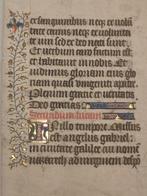 ex sanguinibus neq; ex volūta
te carnis neq; ex voluntate
viri sed ex deo nati sunt. Et
verbum caro factum est. Et
habitauit in nobis. Et vi
dimus gloriam eius gloriam
quasi unigeniti a patre.
plenum gratie et veritatis
Deo gratias
Secundum lucam
In illo tempore. Missus
est angelus gabriel
in ciuitatē galilee cui nomē
nazareth ad virginem despō